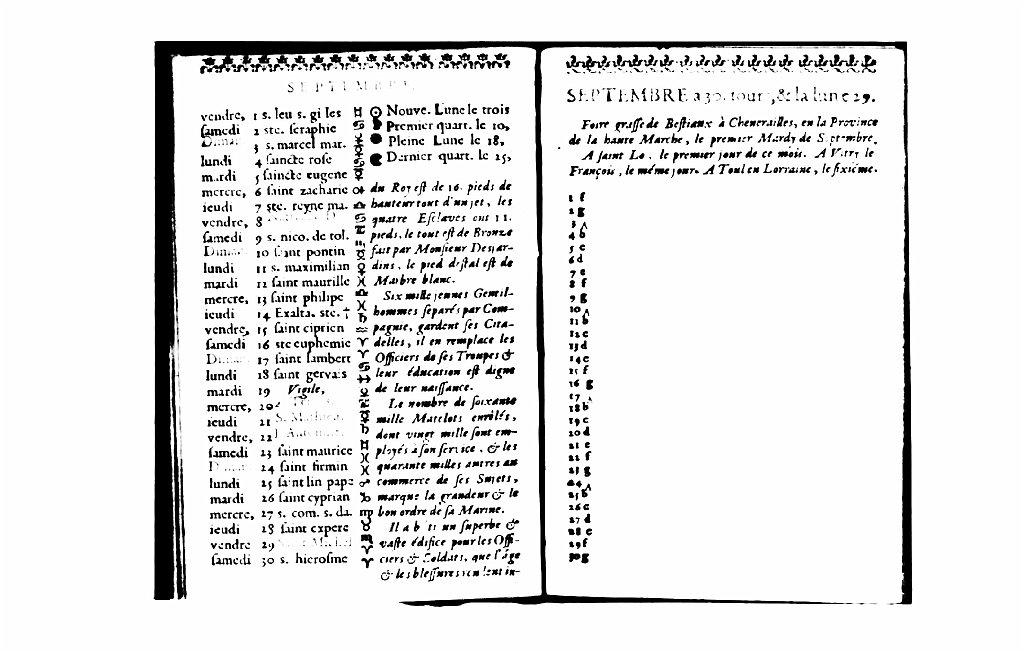 SEPTEMBRE.
vendre, 1 s. leu s. gilles ♉
samedi 2 ste. seraphie ♋
Dima. 3 s. marcel mar.
lundi 4 saincte rose
mardi 5 saincte eugene
mercre, 6 saint zacharie
ieudi 7 ste. reyne ma.
vendre, 8
samedi 9 s. nico. de tol.
Dim. 10 saint pontin
lundi 11 s. maximilian
mardi 12 saint maurille
mercre, 13 saint philipe
ieudi 14 Exalta. ste. †
vendre, 15 saint ciprien
samedi 16 ste euphemie
Di 17 saint lambert
lundi 18 saint gervais
mardi 19 Vigile,
mercre, 20
ieudi 21 S. Mathieu.
vendre, 22
samedi 23 saint maurice
D 24 saint firmin
lundi 25 saint lin pape
mardi 26 saint cyprian
mercre, 27 s. com. s. da.
ieudi 28 saint expere
vendre 29 Saint Michel
samedi 30 s. hierosme
Nouve. Lune le trois
Premier quart. le 10,
Pleine Lune le 18,
Dernier quart. le 25,
du Roy est de 16. pieds de
hauteur tout d'un jet, les
quatre Esclaves ont 11.
pieds, le tout est de Bronze
fait par Monsieur Desjar-
dins, le pied destal est de
Marbre blanc.
Six mille jeunes Gentil-
hommes separés par Com-
pagnie, gardent ses Cita-
delles, il en remplace les
Officiers de ses Troupes &
leur éducation est digne
de leur naissance.
Le nombre de soixante
mille Matelots enrôlés,
dont vingt mille sont em-
ployés à son service, & les
quarante milles autres au
commerce de ses Sujets,
marque la grandeur & le
bon ordre de sa Marine.
Il a bâti un superbe &
vaste édifice pour les Offi-
ciers & Soldats, que l'âge
& les blessures rendent in-
SEPTEMBRE a 30. iours, & la lune 29.
Foire grasse de Bestiaux à Chenerailles, en la Province
de la haute Marche, le premier Mardy de Septembre.
A saint Lo, le premier jour de ce mois. A Vitry le
François, le même jour. A Toul en Lorraine, le sixiéme.
1 f
2 g
3 A
4 b
5 c
6 d
7 e
8 f
9 g
10 A
11 b
12 c
13 d
14 e
15 f
16 g
17 A
18 b
19 c
20 d
21 e
22 f
23 g
24 A
25 b
26 c
27 d
28 e
29 f
30 g